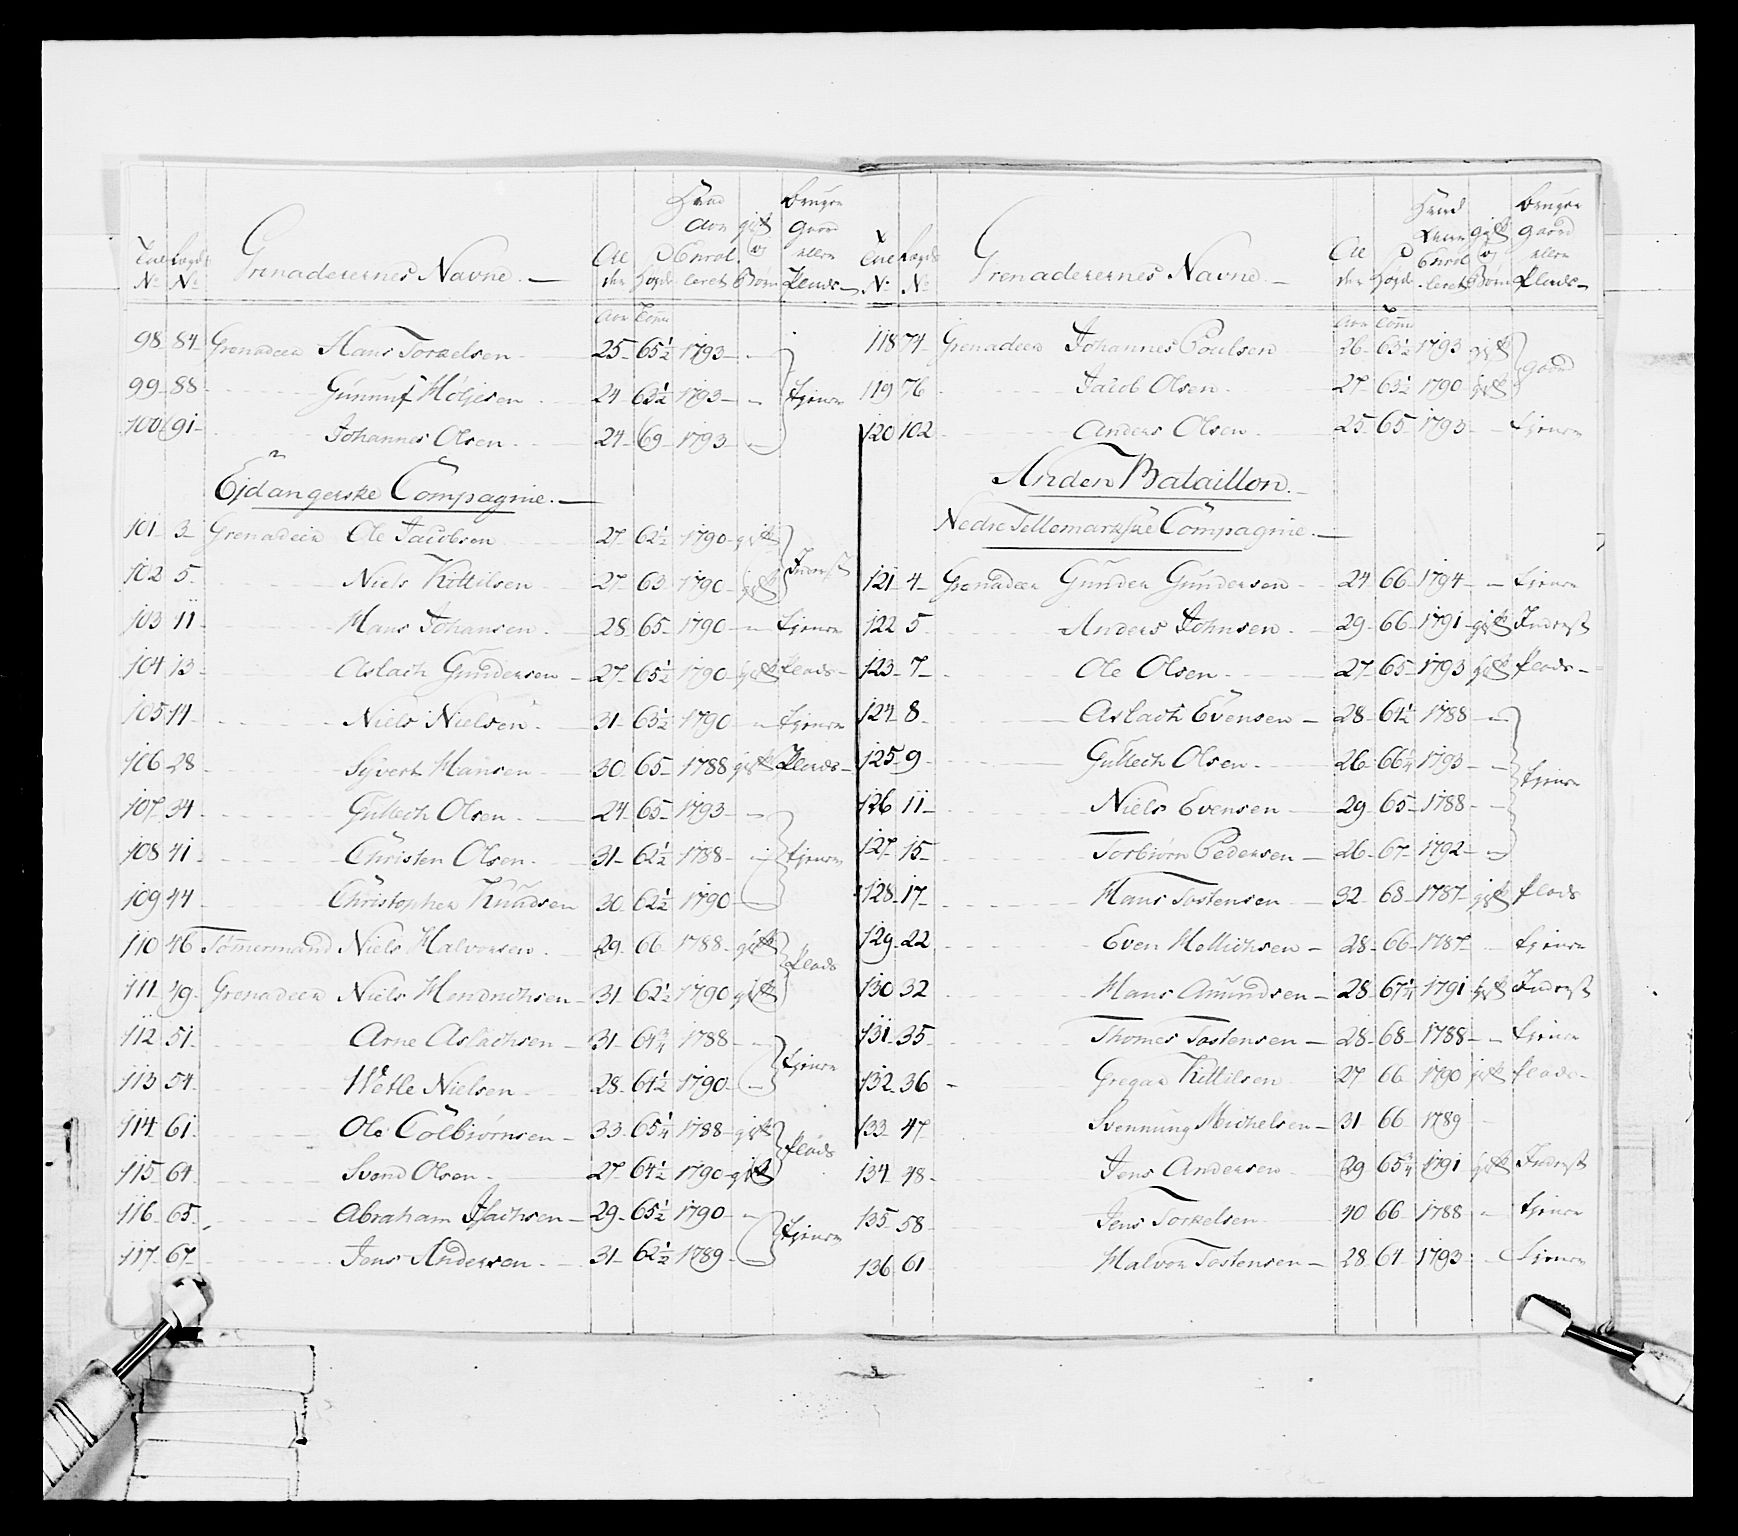 Grenaderernes Navne.
No No Alder Høyde Enrolleret gift og Børn bruger Gaard eller Plads
Aar Tom
98 84 Grenadeer Hans Torkelsen 25 65½ 1793 —
99 88 Gunnuf Höljesen 24 63½ 1793 — tjener
100 91 Johannes Olsen 24 69 1793 —
Ejdangerske Compagnie.
101 3 Grenadeer Ole Jacobsen 27 62½ 1790 gift
102 5 Niels Kittilsen 27 63 1790 gift Inderst
103 11 Hans Johansen 28 65 1790 — tjener
104 13 Aslach Gundersen 27 65½ 1790 gift Plads
105 14 Niels Nielsen 31 63½ 1790 — tjener
106 28 Syvert Hansen 30 65 1788 gift Plads
107 34 Gullech Olsen 24 65 1793 —
108 41 Christen Olsen 31 62½ 1788 — tjener
109 44 Christopher Knudsen 30 62½ 1790 —
110 46 Tömermand Niels Halvorsen 29 66 1788 gift Plads
111 49 Grenadeer Niels Hendrichsen 31 62½ 1790 gift
112 51 Arne Aslachsen 31 64¾ 1788 —
113 54 Wetle Nielsen 28 61½ 1790 — tjener
114 61 Ole Colbiörnsen 33 65¼ 1788 gift Plads
115 64 Svend Olsen 27 64½ 1790 gift
116 65 Abraham Isachsen 29 65½ 1790 — tjener
117 67 Jens Andersen 31 62½ 1789 —
Grenaderernes Navne
No No Alder Høyde Enrolleret gift og Børn bruger gaard eller Plads
Aar Tom
118 74 Grenadeer Johannes Poulsen 26 63½ 1793 gift gaard
119 76 Jacob Olsen 27 63½ 1790 gift
120 102 Anders Olsen 25 65 1793 — tjener
Anden Bataillon.
Nedre Tellemarkske Compagnie.
121 4 Grenadeer Gunder Gundersen 24 66 1794 — tjener
122 5 Anders Johnsen 29 66 1791 gift Inderst
123 7 Ole Olsen 27 65 1793 gift Plads
124 8 Aslach Evensen 28 64½ 1788 —
125 9 Gullech Olsen 26 66¼ 1793 — tjener
126 11 Niels Evensen 29 65 1788 —
127 15 Torbiörn Pedersen 26 67 1792 —
128 17 Hans Tostensen 32 68 1787 gift Plads
129 22 Even Hellichsen 28 66 1787 — tjener
130 32 Hans Amundsen 28 67¼ 1791 gift Inderst
131 35 Thomes Tostensen 28 68 1788 — tjener
132 36 Gregar Kittilsen 27 66 1790 gift Plads
133 47 Svennung Michelsen 31 66 1789 —
134 48 Jens Andersen 29 65¾ 1791 gift Inderst
135 58 Jens Torkelsen 40 66 1788 — tjener
136 61 Halvor Tostensen 28 64 1793 — tjener